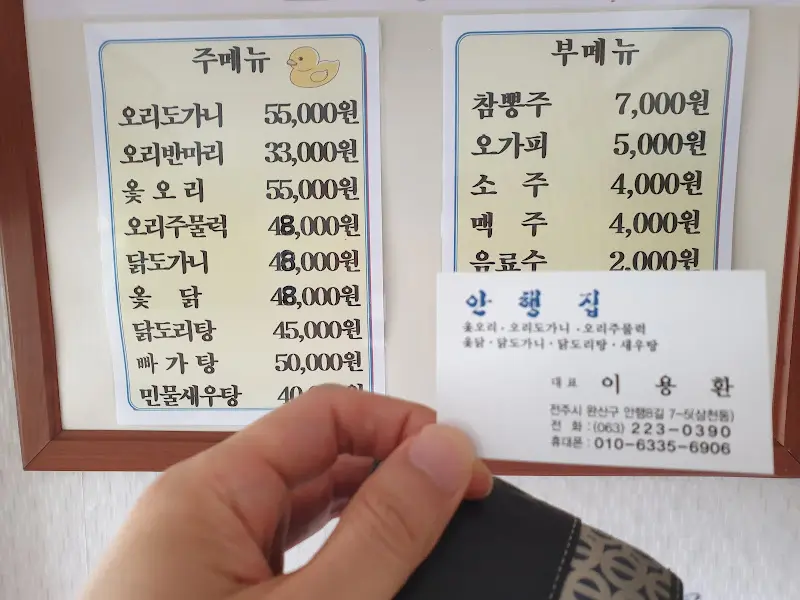 주메뉴
오리도가니 55,000원
오리반마리 33,000원
옻 오 리 55,000원
오리주물럭 48,000원
닭도가니 48,000원
옻 닭 48,000원
닭도리탕 45,000원
빠 가 탕 50,000원
민물세우탕 40,000원
부메뉴
참뽕주 7,000원
오가피 5,000원
소 주 4,000원
맥 주 4,000원
유료수 2,000원
안 행 집
옻오리·오리도가니·오리주물럭
옻닭·닭도가니·닭도리탕·새우탕
대표 이 용 환
전주시 완산구 안행8길 7-5(삼천동)
전 화 : (063) 223-0390
휴대폰 : 010-6335-6906